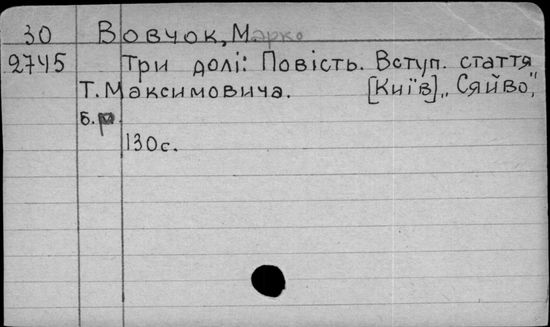 30 Вовчок, Марко
2745 Три долі: Повість. Вступ. стаття
Т. Максимовича. [Київ] „Сяйво",
б.р.
130с.